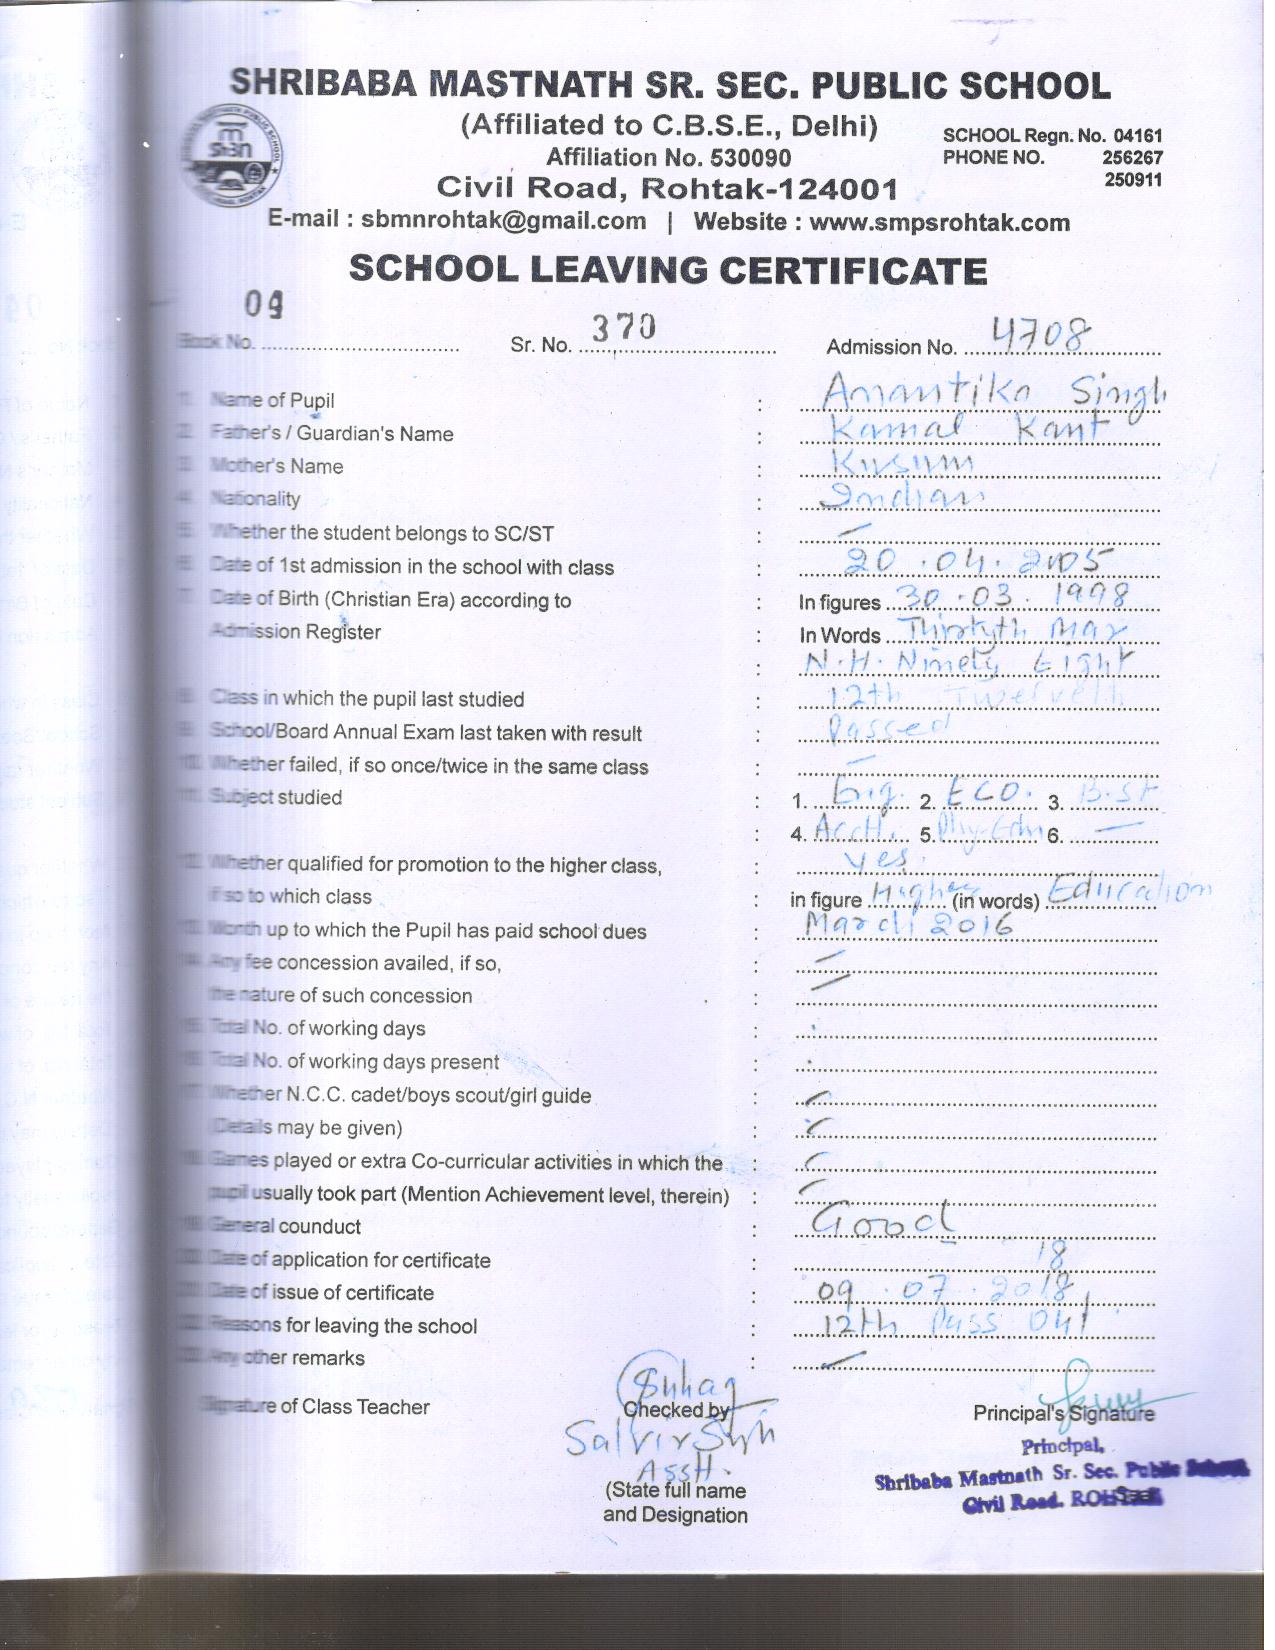 SHRIBABA MASTNATH SR. SEC. PUBLIC SCHOOL
(Affiliated to C.B.S.E., Delhi)
Affiliation No. 530090
SCHOOL Regn. No. 04161
PHONE NO. 256267
250911
Civil Road, Rohtak-124001
E-mail : sbmnrohtak@gmail.com | Website : www.smpsrohtak.com
SCHOOL LEAVING CERTIFICATE
Book No. 09 Sr. No. 370 Admission No. 4708
1. Name of Pupil : Anantika Singh
2. Father's / Guardian's Name : Kamal Kant
3. Mother's Name : Kusum
4. Nationality : Indian
5. Whether the student belongs to SC/ST : —
6. Date of 1st admission in the school with class : 20.04.2005
7. Date of Birth (Christian Era) according to : In figures 30.03.1998
Admission Register : In Words Thirtyth Mar
: N.H. Ninety Eight
8. Class in which the pupil last studied : 12th Twelveth
9. School/Board Annual Exam last taken with result : Passed
10. Whether failed, if so once/twice in the same class : —
11. Subject studied : 1. Eng. 2. ECO. 3. B.St
: 4. Acctt. 5. Phy-Edn 6. —
12. Whether qualified for promotion to the higher class, : Yes.
if so to which class : in figure Higher (in words) Education
13. Month up to which the Pupil has paid school dues : March 2016
14. Any fee concession availed, if so, : —
the nature of such concession : —
15. Total No. of working days :
16. Total No. of working days present :
17. Whether N.C.C. cadet/boys scout/girl guide :
(Details may be given) :
18. Games played or extra Co-curricular activities in which the :
pupil usually took part (Mention Achievement level, therein) :
19. General counduct : Good
20. Date of application for certificate : 18
21. Date of issue of certificate : 09.07.2018
22. Reasons for leaving the school : 12th Pass Out
23. Any other remarks : —
Signature of Class Teacher Checked by Principal's Signature
AssH.
(State full name
and Designation
Principal,
Shribaba Mastnath Sr. Sec. Public School,
Civil Road. ROHTAK